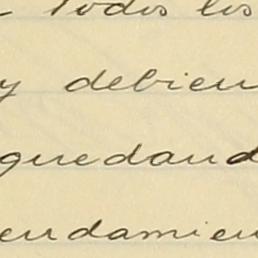 todos los
y debien
quedand
endamien